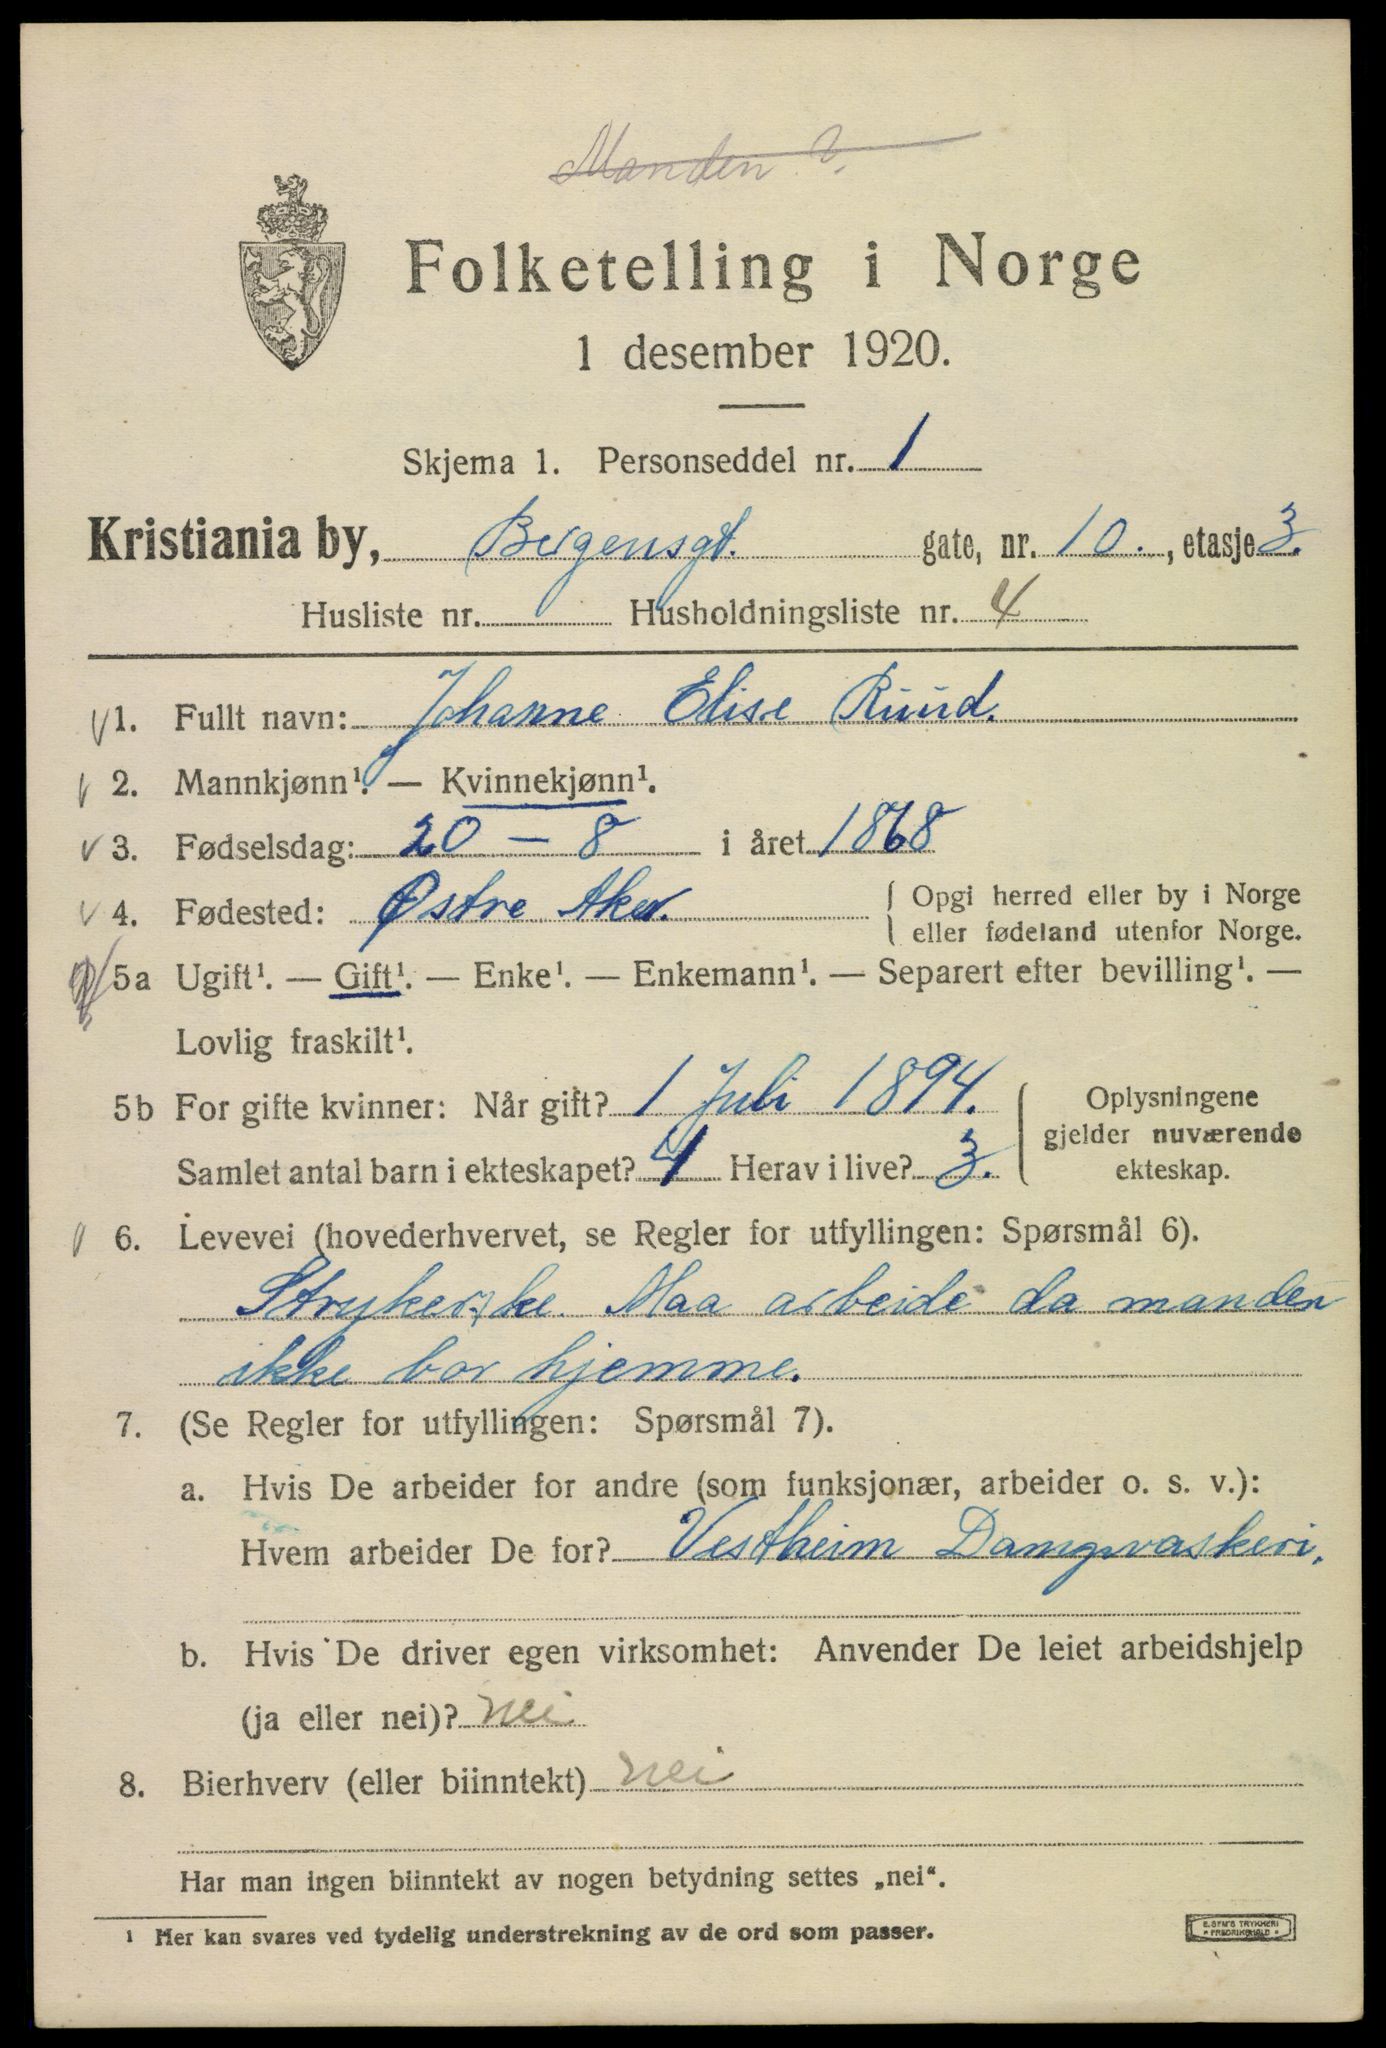 Manden ?
Folketelling i Norge
1 desember 1920.
Skjema 1. Personseddel nr. 1
Kristiania by, Bergensgt. gate, nr. 10., etasje 3.
Husliste nr. Husholdningsliste nr. 4
1. Fullt navn: Johanne Elise Ruud.
2. Mannkjønn¹. — Kvinnekjønn¹.
3. Fødselsdag: 20 – 8 i året 1868
4. Fødested: Østre Aker. { Opgi herred eller by i Norge
eller fødeland utenfor Norge.
5a Ugift¹. — Gift¹. — Enke¹. — Enkemann¹. — Separert efter bevilling¹. —
Lovlig fraskilt¹.
5b For gifte kvinner: Når gift? 1 Juli 1894. { Oplysningene
gjelder nuværende
Samlet antal barn i ekteskapet? 4 Herav i live? 3. ekteskap.
6. Levevei (hovederhvervet, se Regler for utfyllingen: Spørsmål 6).
Strykerske. Maa arbeide da manden
ikke bor hjemme.
7. (Se Regler for utfyllingen: Spørsmål 7).
a. Hvis De arbeider for andre (som funksjonær, arbeider o. s. v.):
Hvem arbeider De for? Vestheim Dampvaskeri.
b. Hvis De driver egen virksomhet: Anvender De leiet arbeidshjelp
(ja eller nei)? nei
8. Bierhverv (eller biinntekt) nei
Har man ingen biinntekt av nogen betydning settes „nei“.
¹ Her kan svares ved tydelig understrekning av de ord som passer.
E. SEM'S TRYKKERI
* FREDRIKSHALD *